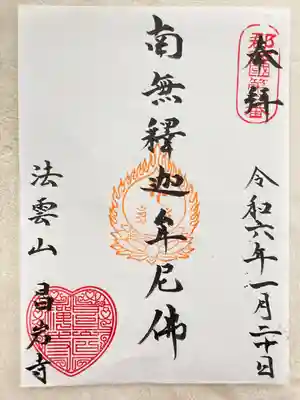 奉拝
令和六年一月二十日
南無釋迦牟尼佛
法雲山 昌岩寺